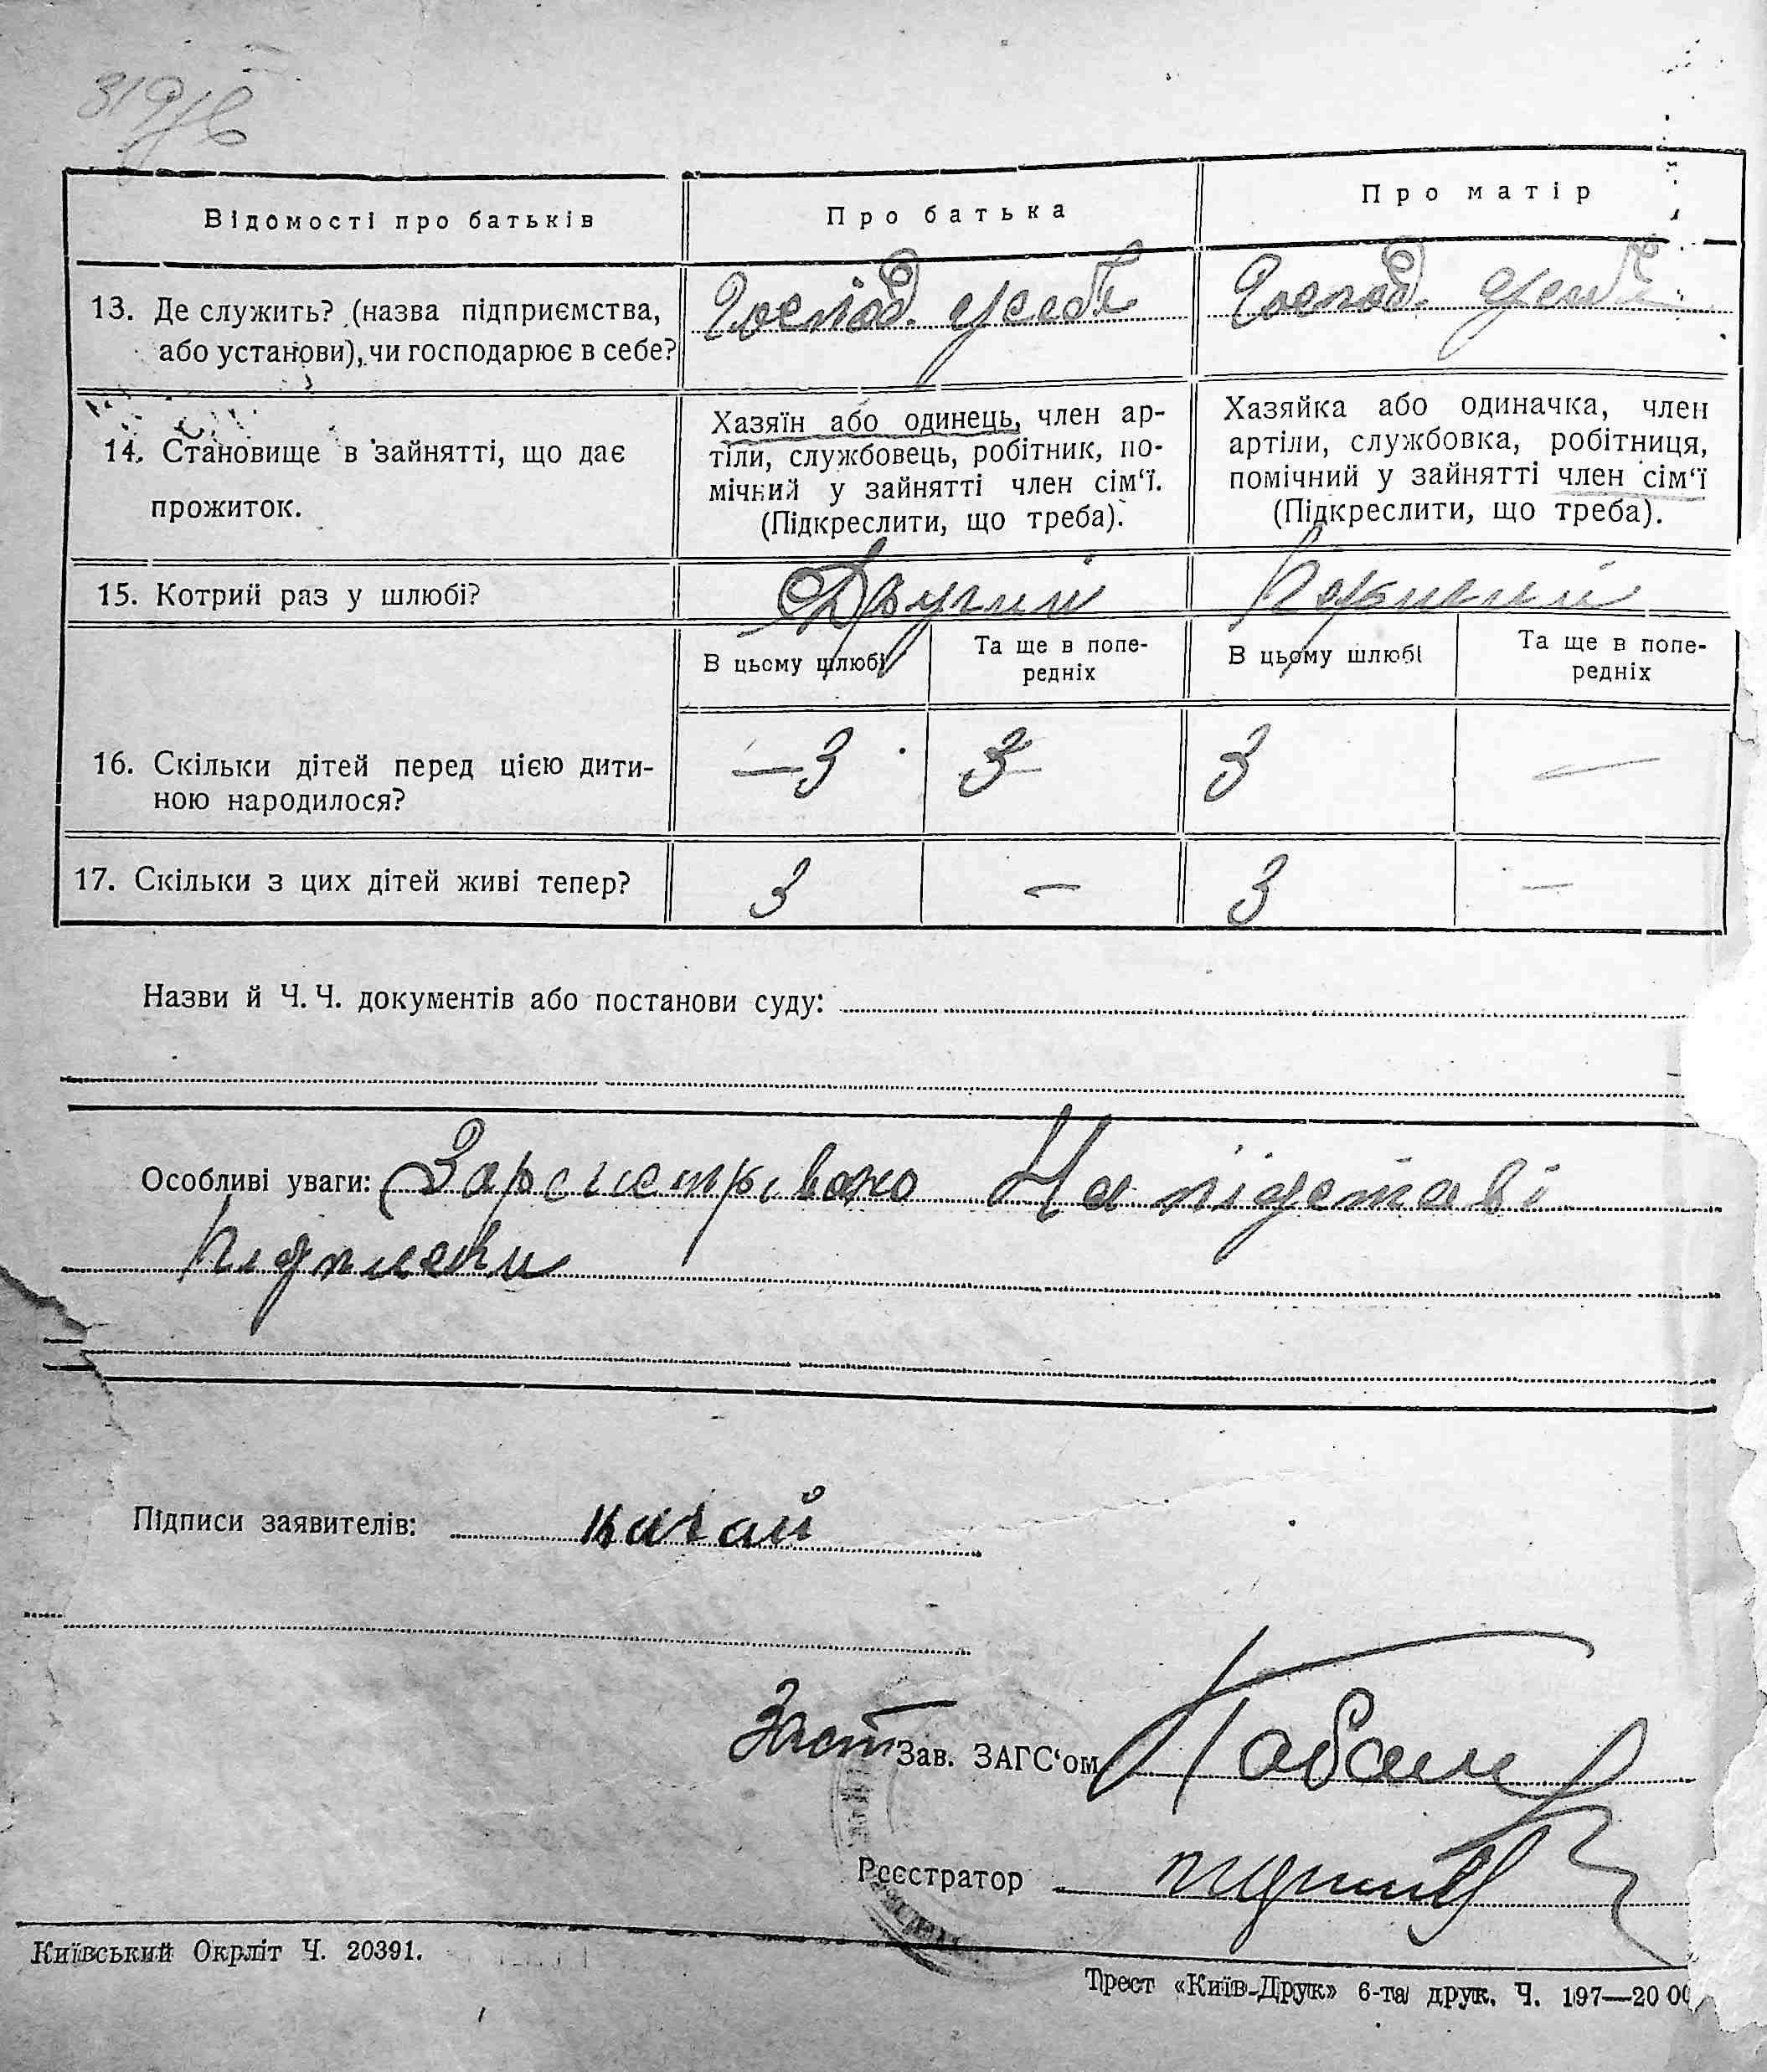 319/6
Відомості про батьків
Про батька
Про матір
13. Де служить? (назва підприємства,
або установи), чи господарює в себе?
Господ. у себе
Господ. у себе
14. Становище в зайнятті, що дає
прожиток.
Хазяїн або одинець, член ар-
тіли, службовець, робітник, по-
мічний у зайнятті член сім‘ї.
(Підкреслити, що треба).
Хазяйка або одиначка, член
артіли, службовка, робітниця,
помічний у зайнятті член сім‘ї
(Підкреслити, що треба).
15. Котрий раз у шлюбі?
Другий
Первий
В цьому шлюбі
Та ще в попе-
редніх
В цьому шлюбі
Та ще в попе-
редніх
16. Скільки дітей перед цією дити-
ною народилося?
— 3
3
3
—
17. Скільки з цих дітей живі тепер?
3
—
3
—
Назви й Ч. Ч. документів або постанови суду:
Особливі уваги: Зарегистровано На підставі
підписки
Підписи заявителів:
Заст Зав. ЗАГС‘ом
Реєстратор
Київський Окрліт Ч. 20391.
Трест «Київ-Друк» 6-та друк. Ч. 197—20 00